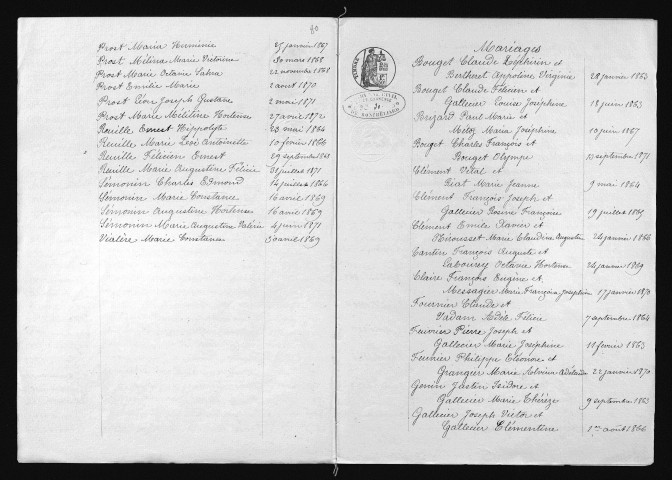 80
Prost Maria Herminie 25 janvier 1867
Prost Mélina Marie Victorine 30 mars 1868
Prost Marie Octavie Laura 22 novembre 1868
Prost Emilie Marie 2 aout 1870
Prost Léon Joseph Gustave 2 mai 1871
Prost Marie Mélitine Hortense 27 aout 1872
Reuille Ernest Hippolyte 23 mai 1864
Reuille Marie Antoinette 10 février 1866
Reuille Félicien Ernest 29 septembre 1868
Reuille Marie Augustine Félicie 31 juillet 1871
Simonin Charles Edmond 14 juillet 1866
Simonin Marie Constance 16 avril 1869
Simonin Augustine Hortense 16 avril 1869
Simonin Marie Augustine Valérie 4 juin 1871
Vialère Marie Constance avril 1869
Mariages
Bouget Claude et
Berthelet Appoline Virginie 28 janvier 1863
Bouget Claude Félicien et
Gallecier Louise Joséphine 18 juin 1863
Paul Marie et
Maria Joséphine 10 juin 1867
Bouget Charles François et
Bouget Olympe 13 septembre 1871
Clément Vital et
Marie Jeanne 9 mai 1864
Clément François Joseph et
Gallecier Rosine Françoise 19 juillet 1865
Clément Emile Xavier et
Marie Claudine Augustine 24 janvier 1866
François Auguste et
Octavie Hortense 24 janvier 1869
Claire François Eugène et
Messagier Marie Françoise Joséphine 17 janvier 1870
Fournier Claude et
Adèle Félicie 7 septembre 1864
Fumier Pierre Joseph et
Gallecier Marie Joséphine 11 février 1863
Fumier Philippe Eléonore et
Grangier Marie Adélaïde 22 janvier 1870
Genin Justin Isidore et
Gallecier Marie Thérèze 9 septembre 1863
Gallecier Joseph Victor et
Gallecier Clémentine 1er août 1866